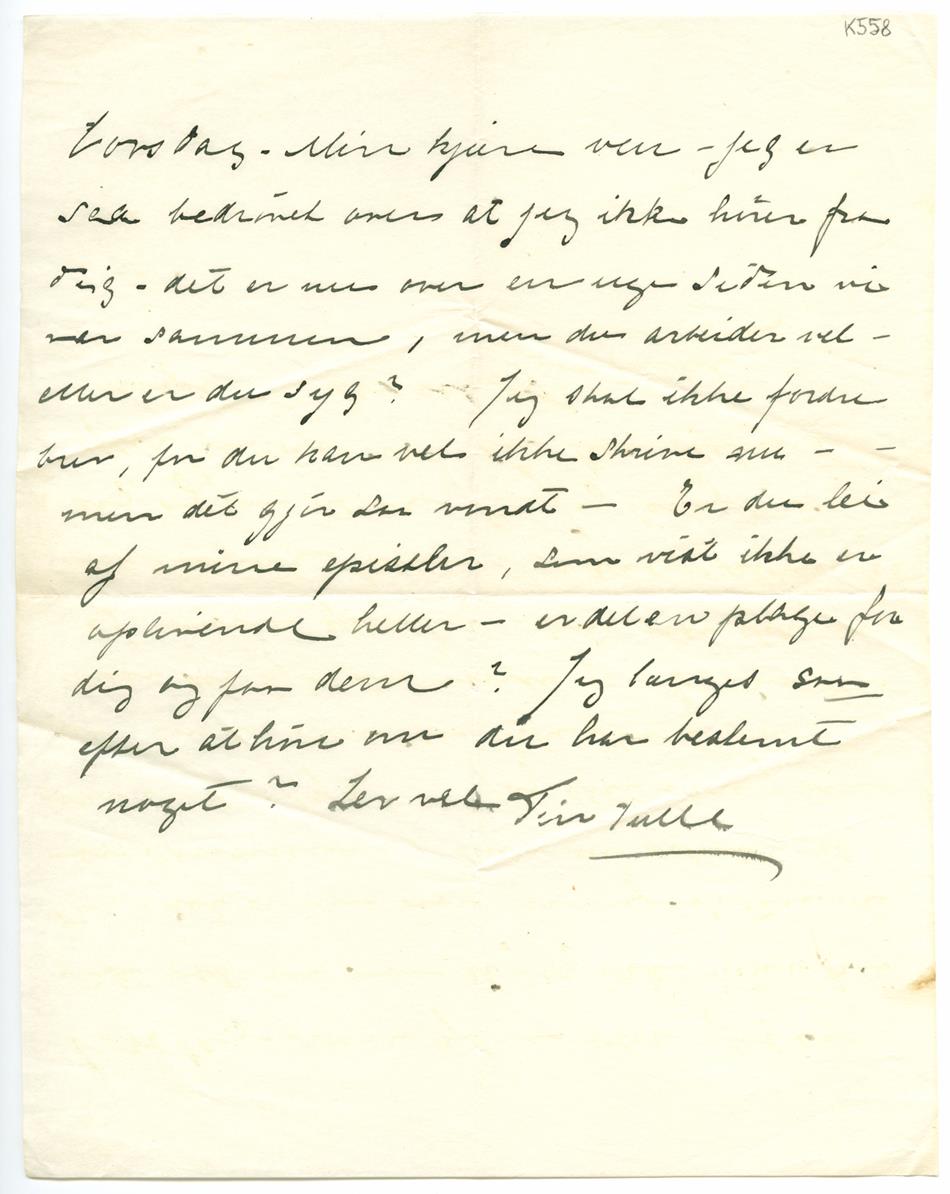 K558
Torsdag – Min kjære ven – jeg er
saa bedrøvet over at jeg ikke hører fra
dig – det er nu over en uge siden vi
var sammen, men du arbeider vel –
eller er du syg? Jeg skal ikke fordre
brev, for du kan vel ikke skrive nu – –
men det gjør saa vondt – Er du lei
af mine epistler, som vist ikke er
oplivende heller – er det en plage for
dig og faa dem? Jeg længes saa
efter at høre om du har bestemt
noget? Lev vel Din Tulle